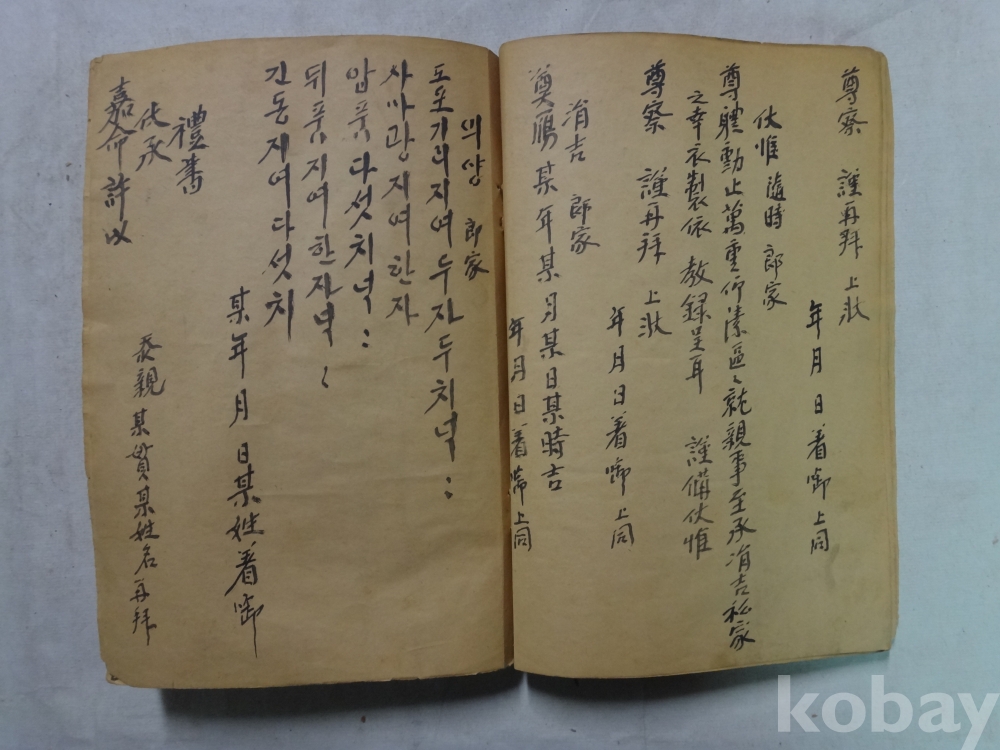 尊察 謹再拜 上狀
年 月 日 着啣 上同
伏惟 隨時 郎家
尊體動止萬重仰溸區〻就親事至承涓吉私家
之幸衣製依 教錄呈耳 謹備伏惟
尊察 謹再拜 上狀
年 月 日 着啣 上同
涓吉 郎家
奠鴈 某年某月某日某時吉
年 月 日 着啣 上同
의양 郎家
도포기리지여두자두치넉〻
사마광지여한자
압품다섯치넉〻
뒤품지여한자넉〻
긴동지여다섯치
某年 月 日某姓着啣
禮書
伏承
嘉命許以
忝親某貫某姓名再拜
kobay